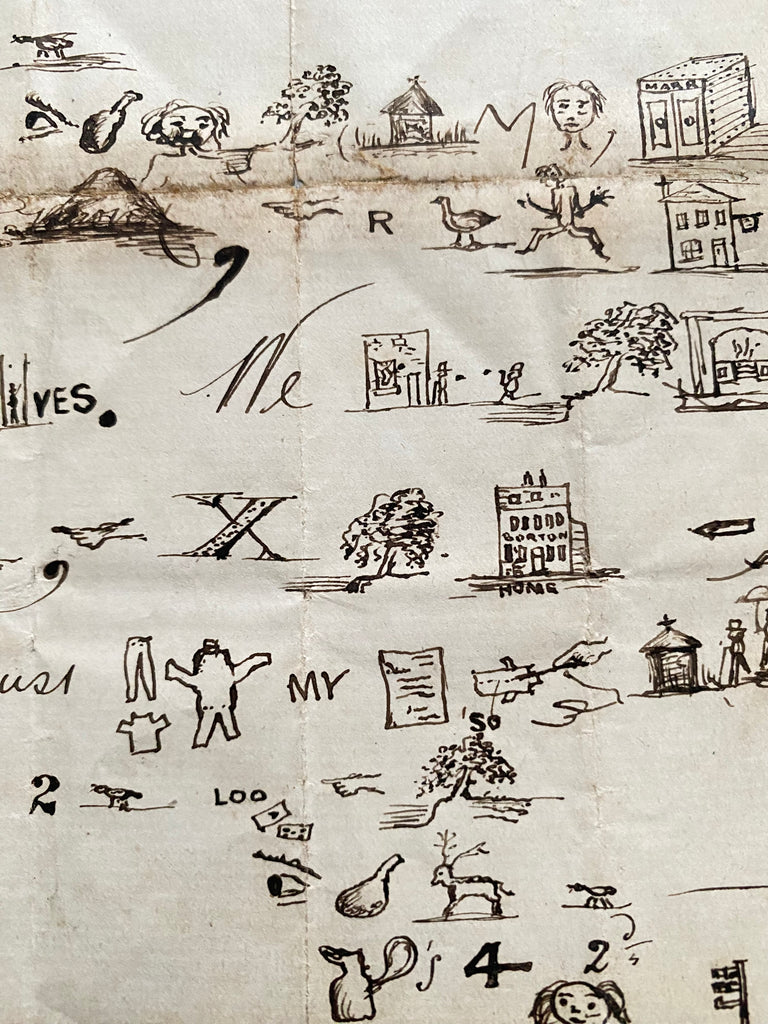 M MARR
R
VES.
We
X BORTON
HOME
UST MY
SO
2 LOO
's 4 2